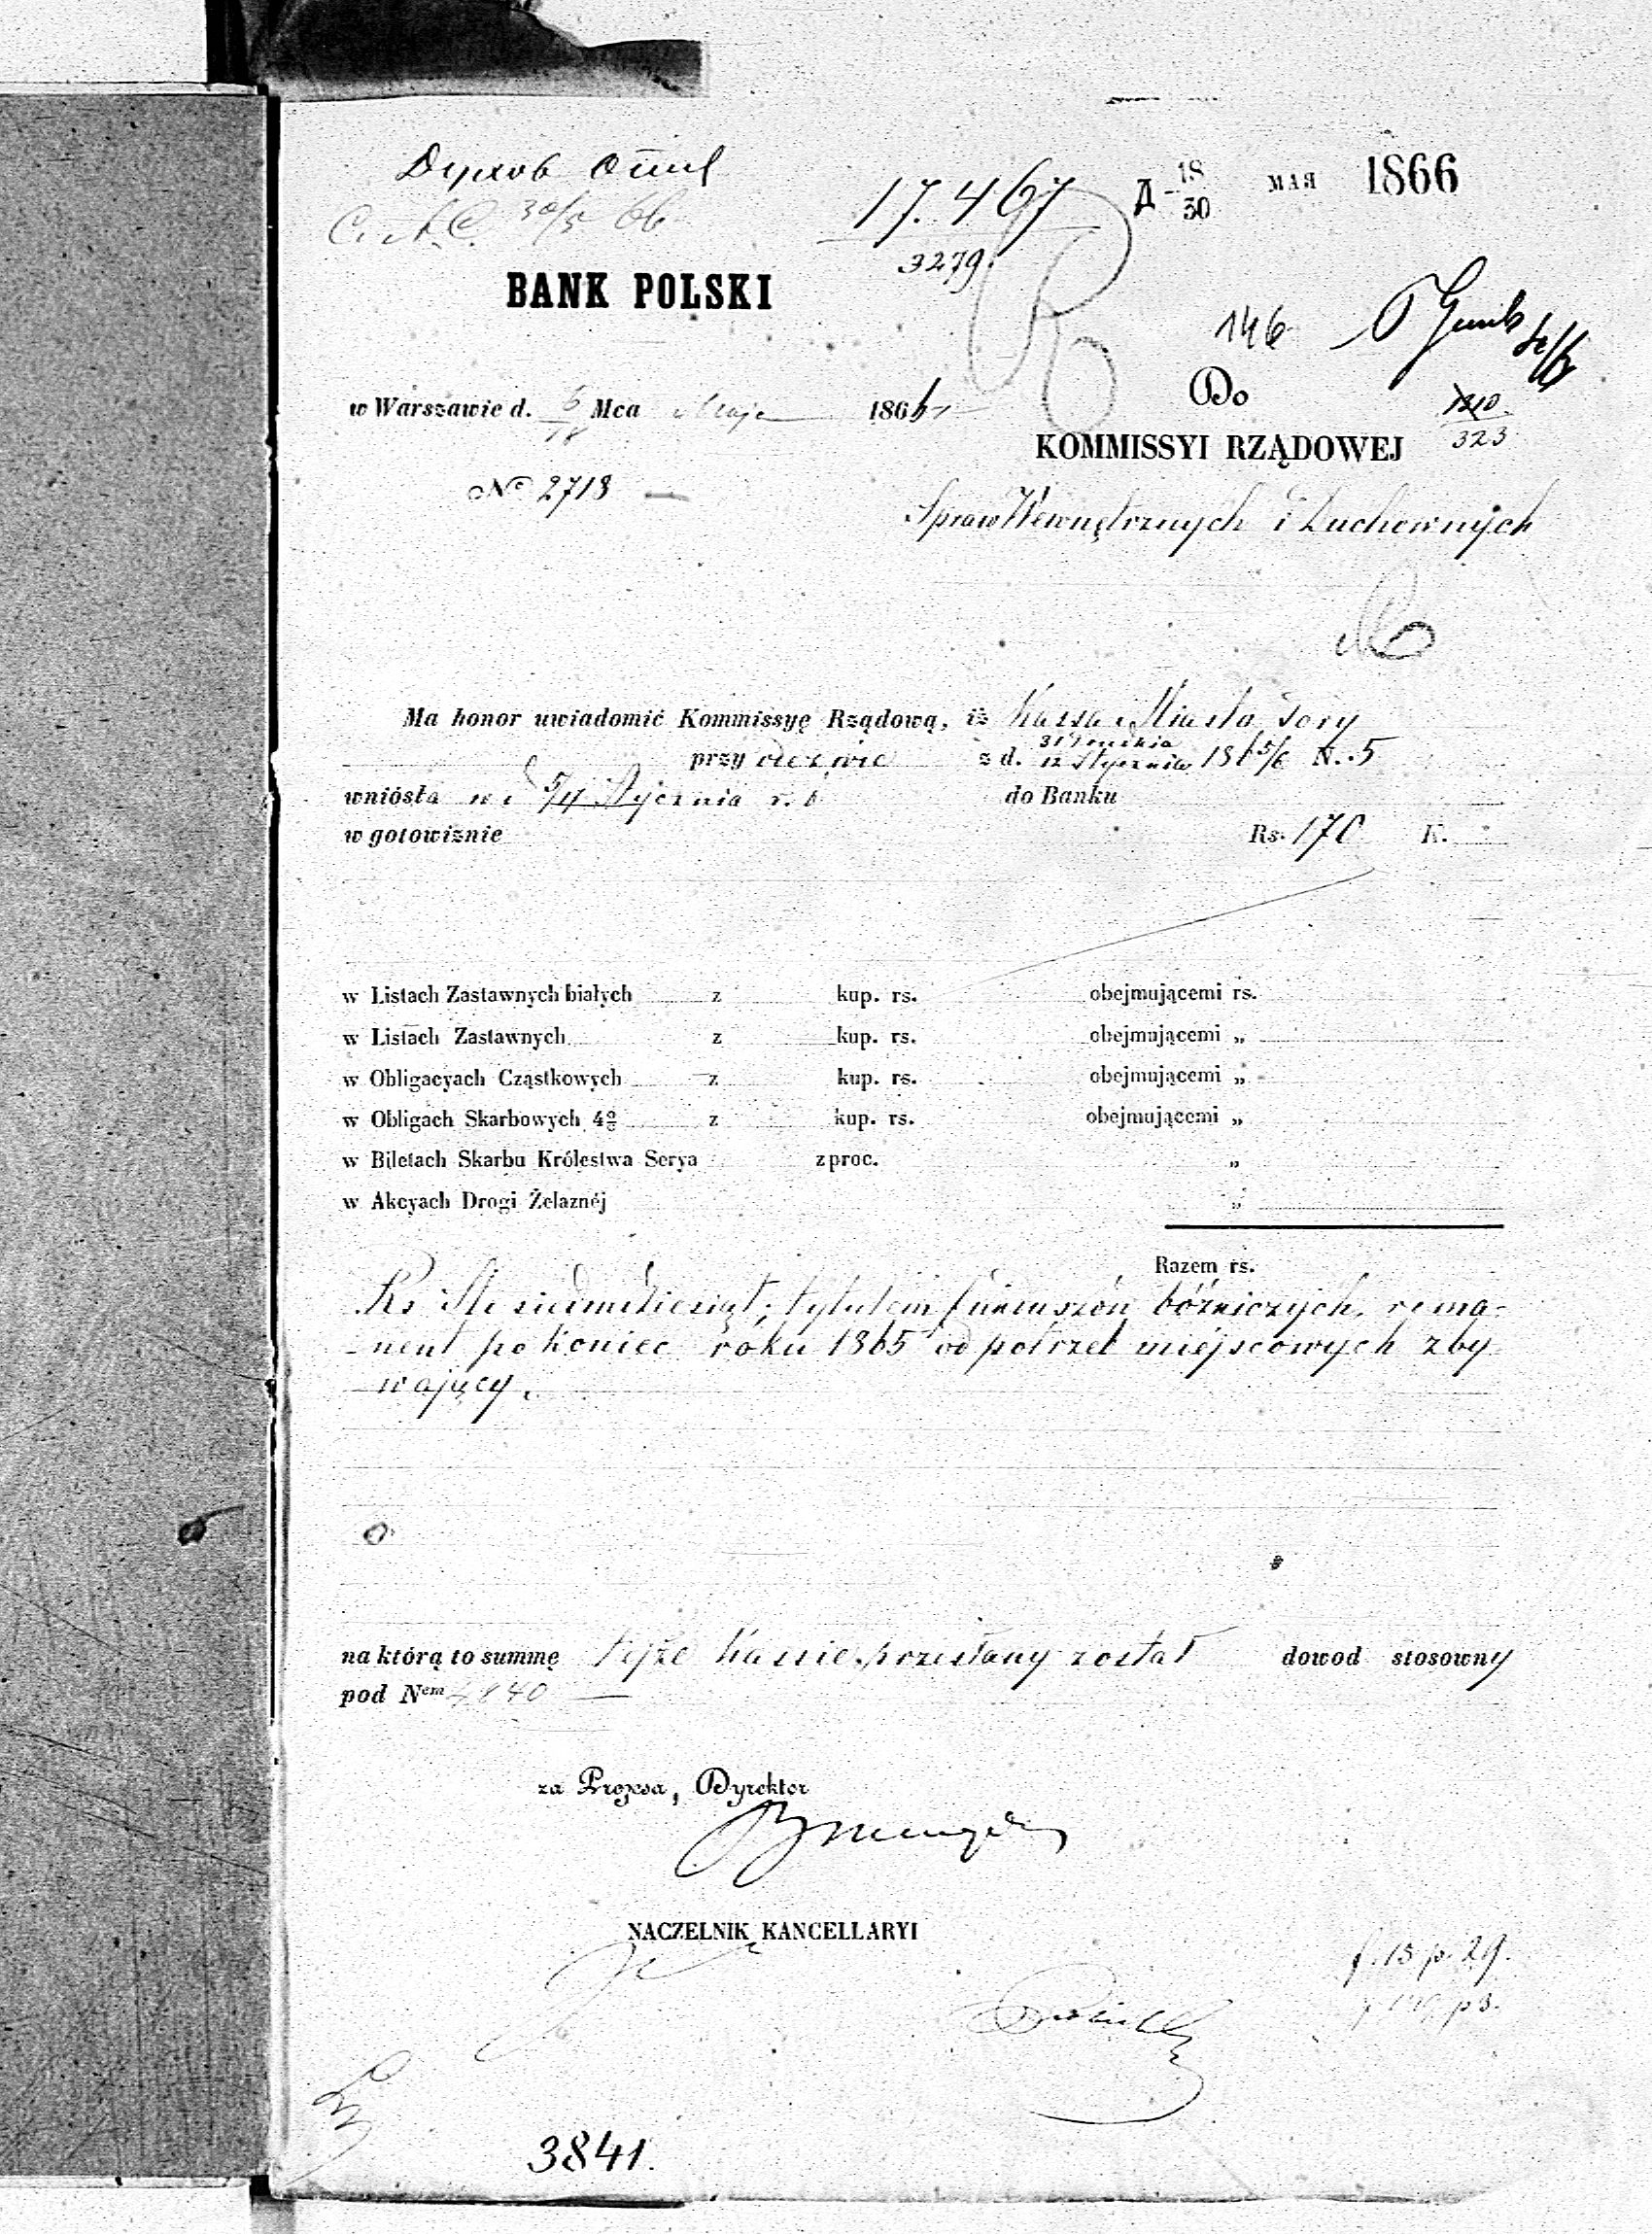 17.467
3279.
Д 18/30 МАЯ 1866
30/5 66
BANK POLSKI
146
Do
1210
323
w Warszawie d. 6/18 Mca Maja 1866
KOMMISSYI RZĄDOWEJ
No 2718
Spraw Wewnętrznych i Duchownych
Ma honor uwiadomić Kommissyę Rządową, iż Kassa Miasta
przy odezwie z d. 31 Grudnia/12 Stycznia 1865/6 N. 5
wniósła w d. Stycznia r. b. do Banku
w gotowiznie Rs. 170 K.
w Listach Zastawnych białych z kup. rs. obejmującemi rs.
w Listach Zastawnych z kup. rs. obejmującemi „
w Obligacyach Cząstkowych z kup. rs. obejmującemi „
w Obligach Skarbowych 4% z kup. rs. obejmującemi „
w Biletach Skarbu Królestwa Serya z proc. „
w Akcyach Drogi Żelaznéj „
Razem rs.
Rs Sto siedmdziesiąt, tytułem funduszów bóźniczych, rema-
-nent po koniec roku 1865 od potrzeb miéjscowych zby-
wający.
na którą to summę téjże Kassie przesłany został dowod stosowny
pod Nem 4840
za Prezesa, Dyrektor
NACZELNIK KANCELLARYI
f. 15 p. 29.
3841.